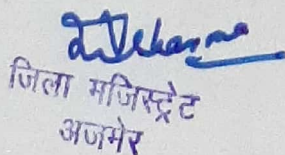 जिला मजिस्ट्रेट
अजमेर